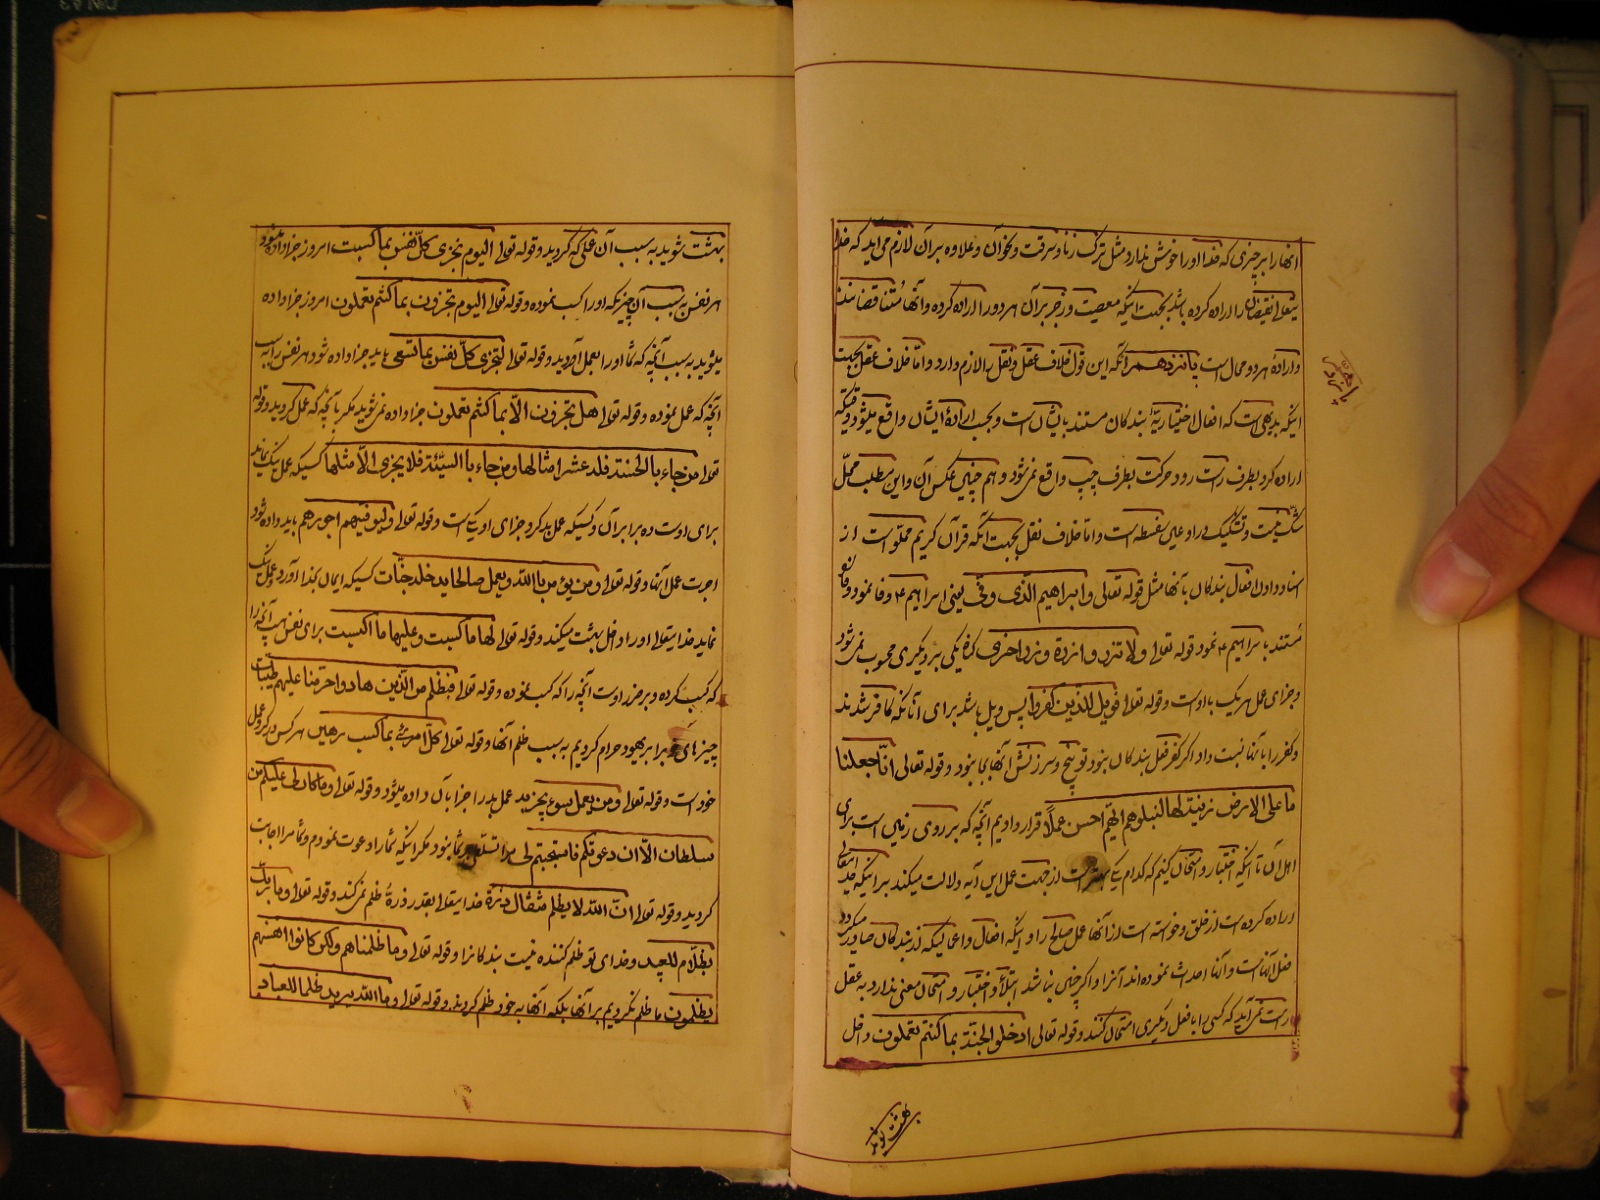 انها را بر چیزی که خدا او را خوش ندارد مثل ترک زنا و سرقت و نحو آن و علاوه بر آن لازم می اید که خدا
یتعالی نقیضان را اراده کرده باشد بجهت اینکه معصیت و زجر بر آن هر دو را اراده کرده و آنها متناقضانند
و اراده هر دو محال است پانزدهم انکه این قول خلاف عقل و نقل را لازم دارد و اما خلاف عقل بجهت
اینکه بدیهی است که افعال اختیاریه بندکان مستند بایشان است و بحسب اراده ایشان واقع میشود وقتیکه
اراده کرد بطرف راست رود حرکت بطرف چپ واقع نمی شود و هم چنین عکس آن و این مطلب محل
شک نیست و تشکیک در او عین سفسطه است و اما خلاف نقل بجهت آنکه قرآن کریم مملو است از
اسناد دادن افعال بندکان بآنها مثل قوله تعالی و ابراهیم الذی وفی یعنی ابراهیم ع وفا نمود وفا
مستند بابراهیم ع نمود قوله تعالی ولا تزر وازرة وزر اخری کناه یکی بر دیکری محسوب نمی شود
و جزای عمل هر یک با اوست و قوله تعالی فویل للذین کفروا پس ویل باشد برای آنانکه کافر شدند
و کفر را بآنها نسبت داد اکر کفر فعل بندکان نبود توبیخ و سرزنش آنها بجا نبود و قوله تعالی انا جعلنا
ما علی الارض زینة لها لنبلوهم ایهم احسن عملا قرار دادیم آنچه که بر روی زمین است برای
اهل آن تا اینکه اختبار و امتحان کنیم که کدام یک بهتر است از جهت عمل این آیه دلالت میکند بر اینکه خدایتعالی
اراده کرده است از خلق و خواسته است از آنها عمل صالح را و اینکه افعال و اعمالیکه از بندکان صادر میکردد
فعل آنهاست و آنها احداث نموده اند آنرا و اکر چنین نباشد ابتلا و اختبار و امتحان معنی ندارد به عقل
راست نمی آید که کسی را بافعل دیکری امتحان کنند و قوله تعالی ادخلو الجنة بما کنتم تعملون داخل
بهشت شوید
بهشت شوید به سبب آن عملی که کردید و قوله تعالی الیوم تجزی کل نفس بما کسبت امروز جزا داده میشود
هر نفس به سبب آن چیزیکه او را کسب نموده و قوله تعالی الیوم تجزون بما کنتم تعملون امروز جزا داده
میشوید به سبب آنچه که شما او را بعمل آوردید و قوله تعالی لتجزی کل نفس بما تسعی باید جزا داده شود هر نفس را به سبب
آنچه که عمل نموده و قوله تعالی هل تجزون الا بما کنتم تعملون جزا داده نمی شوید مکر بآنچه که عمل کردید و قوله
تعالی من جاء بالحسنة فله عشر امثالها و من جاء باالسیئة فلا یجزی الا مثلها کسیکه عمل نیک نماید
برای اوست ده برابر آن و کسیکه عمل بد کرد جزای او یک است و قوله تعالی ولیوفیهم اجورهم باید داده شود
اجرت عمل آنها و قوله تعالی و من یؤمن باالله و یعمل صالحا یدخله جنات کسیکه ایمان بخدا آورد و عمل نیک
نماید خدایتعالی او را داخل بهشت میکند و قوله تعالی لها ما کسبت و علیها ما اکتسبت برای نفس است آنچه را
که کسب کرده و بر ضرر اوست آنچه را که کسب نموده و قوله تعالی فبظلم من الذین هادوا حرمنا علیهم طیبات
چیزهای خوب را بر یهود حرام کردیم به سبب ظلم آنها و قوله تعالی کل امرئ بما کسب رهین هر کس در کرو عمل
خود است و قوله تعالی و من یعمل سوء یجز به عمل بد را جزا بآن داده میشود و قوله تعالی و ما کان لی علیکم من
سلطان الا ان دعوتکم فاستجبتم لی مرا تسلطی بر شما نبود مکر اینکه شما را دعوت نمودم و شما مرا اجابت
کردید و قوله تعالی ان الله لا یظلم مثقال ذرة خدایتعالی بقدر ذرهٔ ظلم نمی کند و قوله تعالی و ما ربک
بظلام للعبید و خدای تو ظلم کننده نیست بندکانرا و قوله تعالی و ما ظلمناهم ولکن کانوا انفسهم
یظلمون ما ظلم نکردیم بر آنها بلکه آنها به خود ظلم کردند و قوله تعالی و ما الله یرید ظلما للعباد